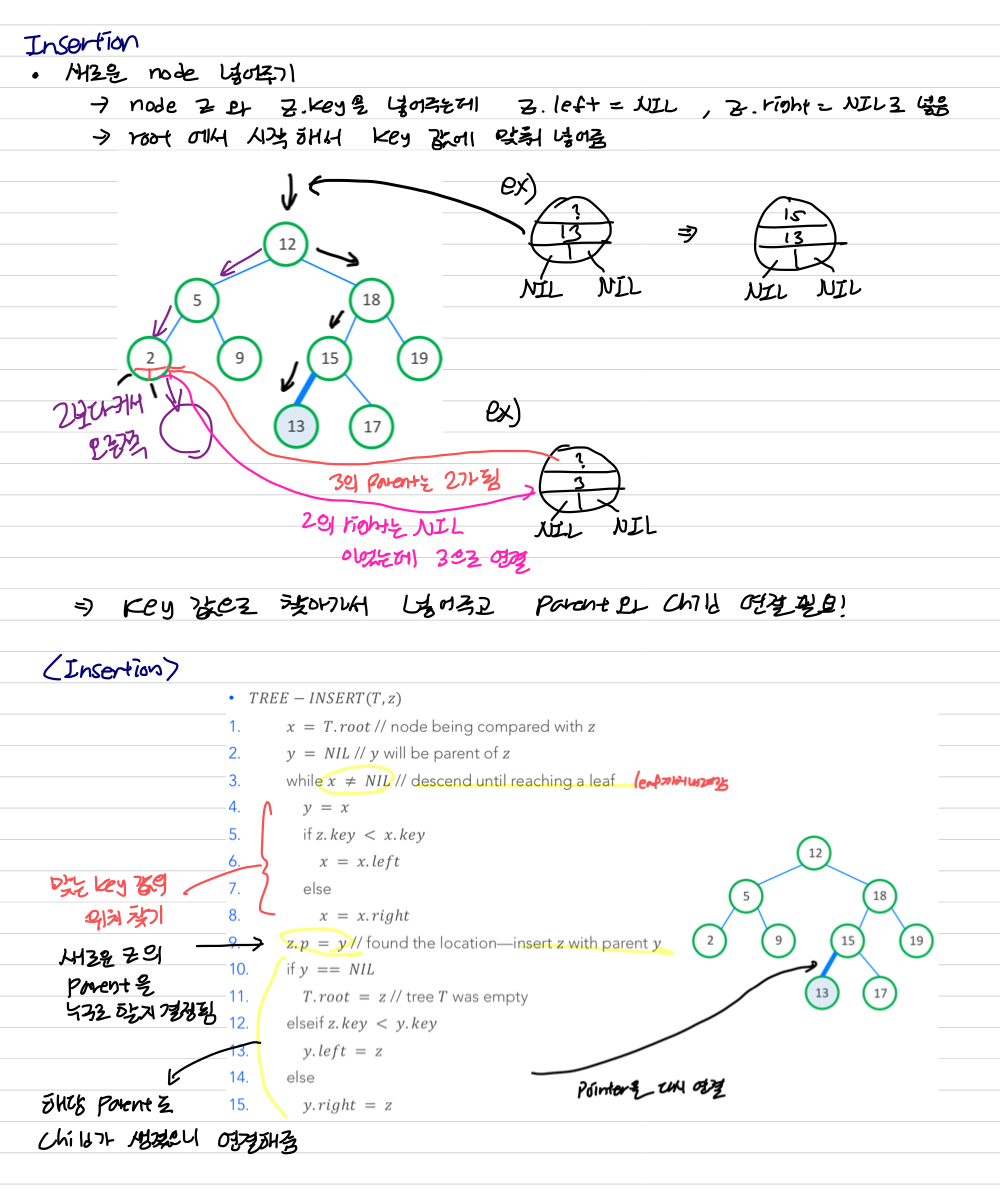 Insertion
• 새로운 node 넣어주기
→ node z 와 z.key를 넣어주는데 z.left = NIL , z.right = NIL로 넣음
→ root 에서 시작해서 key 값에 맞춰 넣어줌
ex)
?
13
NIL NIL
⇒
15
13
NIL NIL
12
5
18
2
9
15
19
13
17
2보다 커서
오른쪽
ex)
?
3
NIL NIL
3의 parent는 2가 됨
2의 right는 NIL
이었는데 3으로 연결
⇒ key 값으로 찾아가서 넣어주고 parent와 child 연결 필요!
<Insertion>
• TREE − INSERT(T, z)
1. x = T.root // node being compared with z
2. y = NIL // y will be parent of z
3. while x ≠ NIL // descend until reaching a leaf leaf까지 내려감
4. y = x
5. if z.key < x.key
6. x = x.left
7. else
8. x = x.right
9. z.p = y // found the location—insert z with parent y
10. if y == NIL
11. T.root = z // tree T was empty
12. elseif z.key < y.key
13. y.left = z
14. else
15. y.right = z
맞는 key 값의
위치 찾기
새로운 z의
parent을
누구로 할지 결정됨
해당 parent도
child가 생겼으니 연결해줌
12
5
18
2
9
15
19
13
17
pointer을 다시 연결